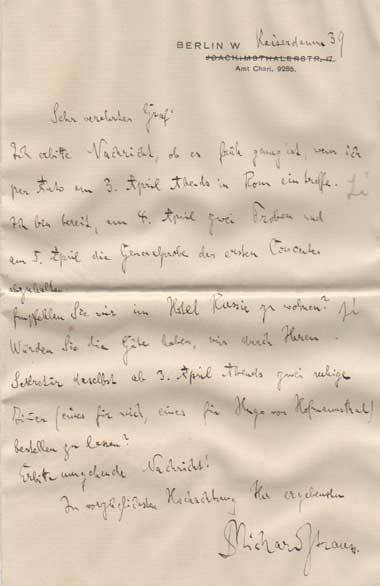 BERLIN W Kaiserdamm 39
JOACHIMSTHALERSTR. 17.
Amt Charl. 9286.
Sehr verehrter Graf!
Ich erbitte Nachricht, ob es früh genug ist, wenn ich
per Auto am 3. April Abends in Rom eintreffe. Ja
Ich bin bereit, am 4. April zwei Proben und
am 5. April die Generalprobe des ersten Concertes
abzuhalten
Empfehlen Sie mir im Hotel Russie zu wohnen? Ja
Würden Sie die Güte haben, mir durch Ihren
Sekretär daselbst ab 3. April Abends zwei ruhige
Zimmer (eines für mich, eines für Hugo von Hofmannsthal)
bestellen zu lassen?
Erbitte umgehende Nachricht!
In vorzüglichster Hochachtung Ihr ergebenster
Richard Strauss.